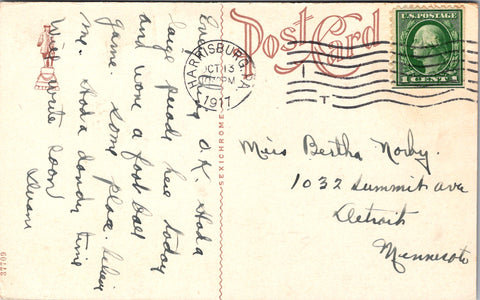 Everything O.K. Had a
large parade here today
and wore a foot ball
game. some place. believe
me. Had a dandy time
Will write soon
Post Card
HARRISBURG, PA.
OCT 13
PM
1917
U.S. POSTAGE
1 CENT 1
SEXICHROME
Miss Bertha Norby.
1032 Summit ave
Detroit
Minnesota
37709